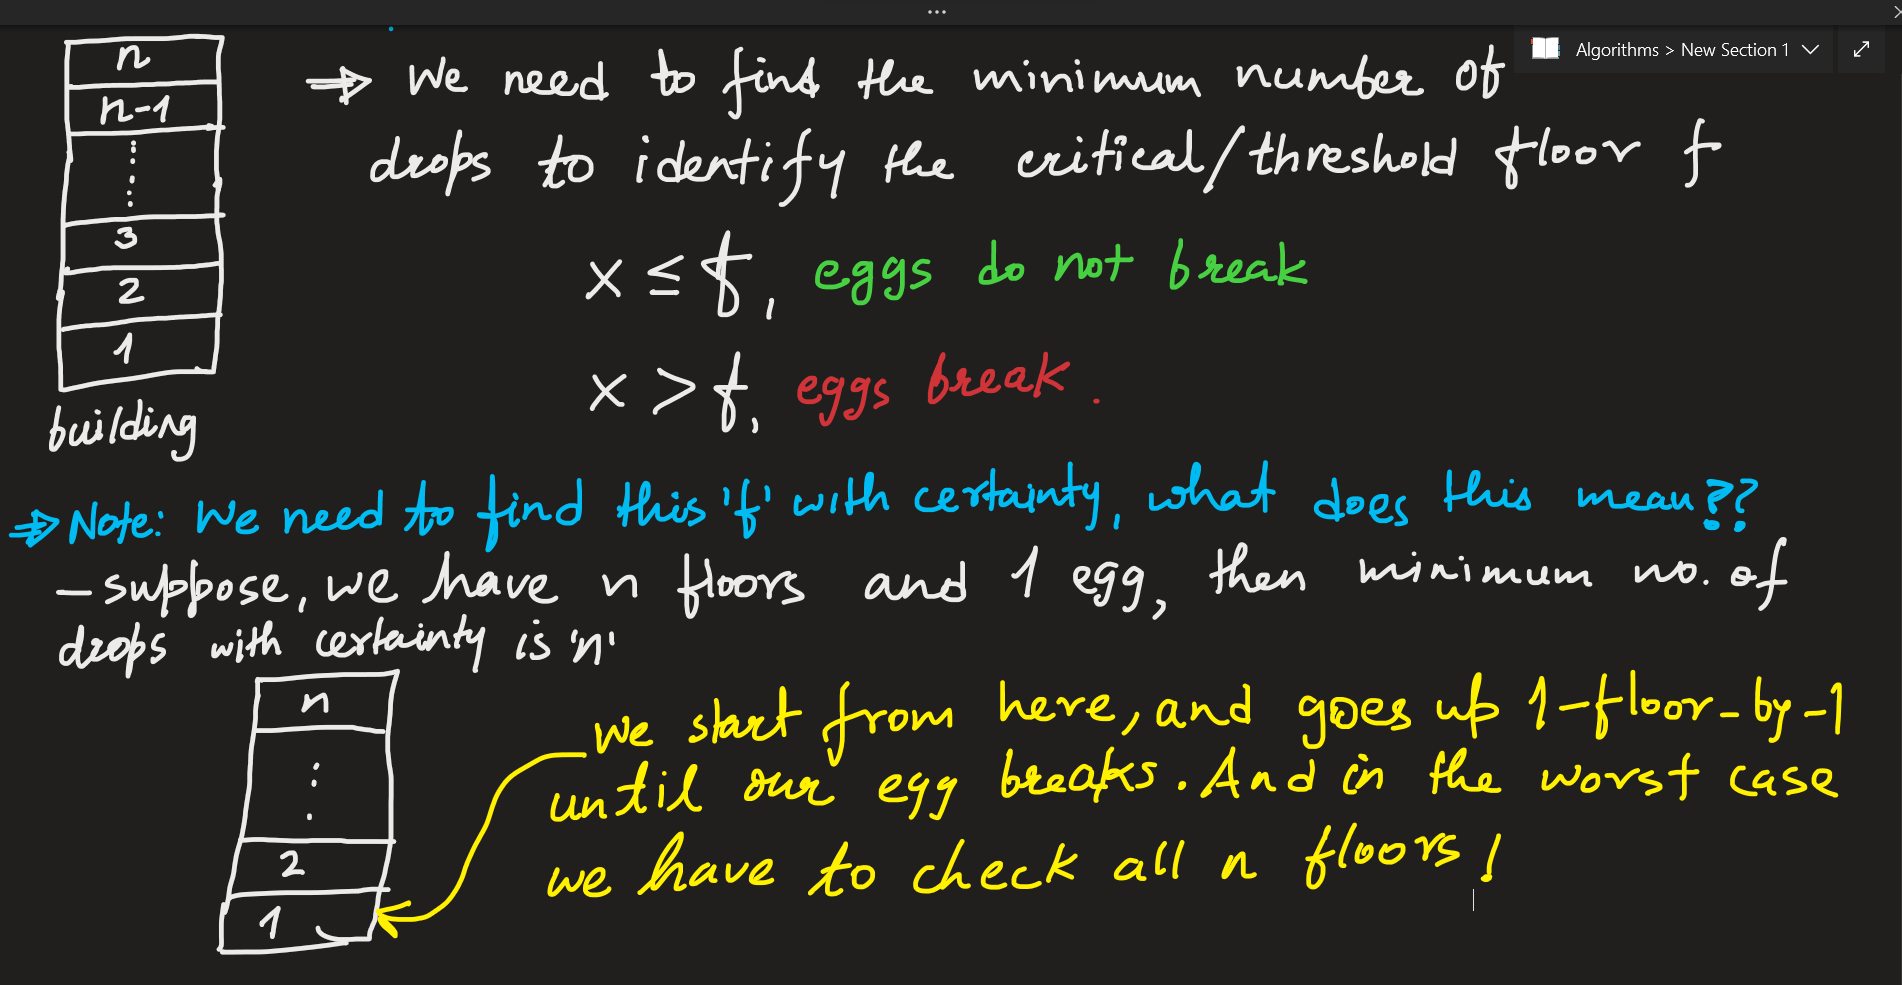 Algorithms > New Section 1
n
n-1
3
2
1
building
⇒ We need to find the minimum number of
drops to identify the critical/threshold floor f
x ≤ f, eggs do not break
x > f, eggs break.
⇒ Note: We need to find this 'f' with certainty, what does this mean??
- suppose, we have n floors and 1 egg, then minimum no. of
drops with certainty is 'n'
n
2
1
we start from here, and goes up 1-floor-by-1
until our egg breaks. And in the worst case
we have to check all n floors!